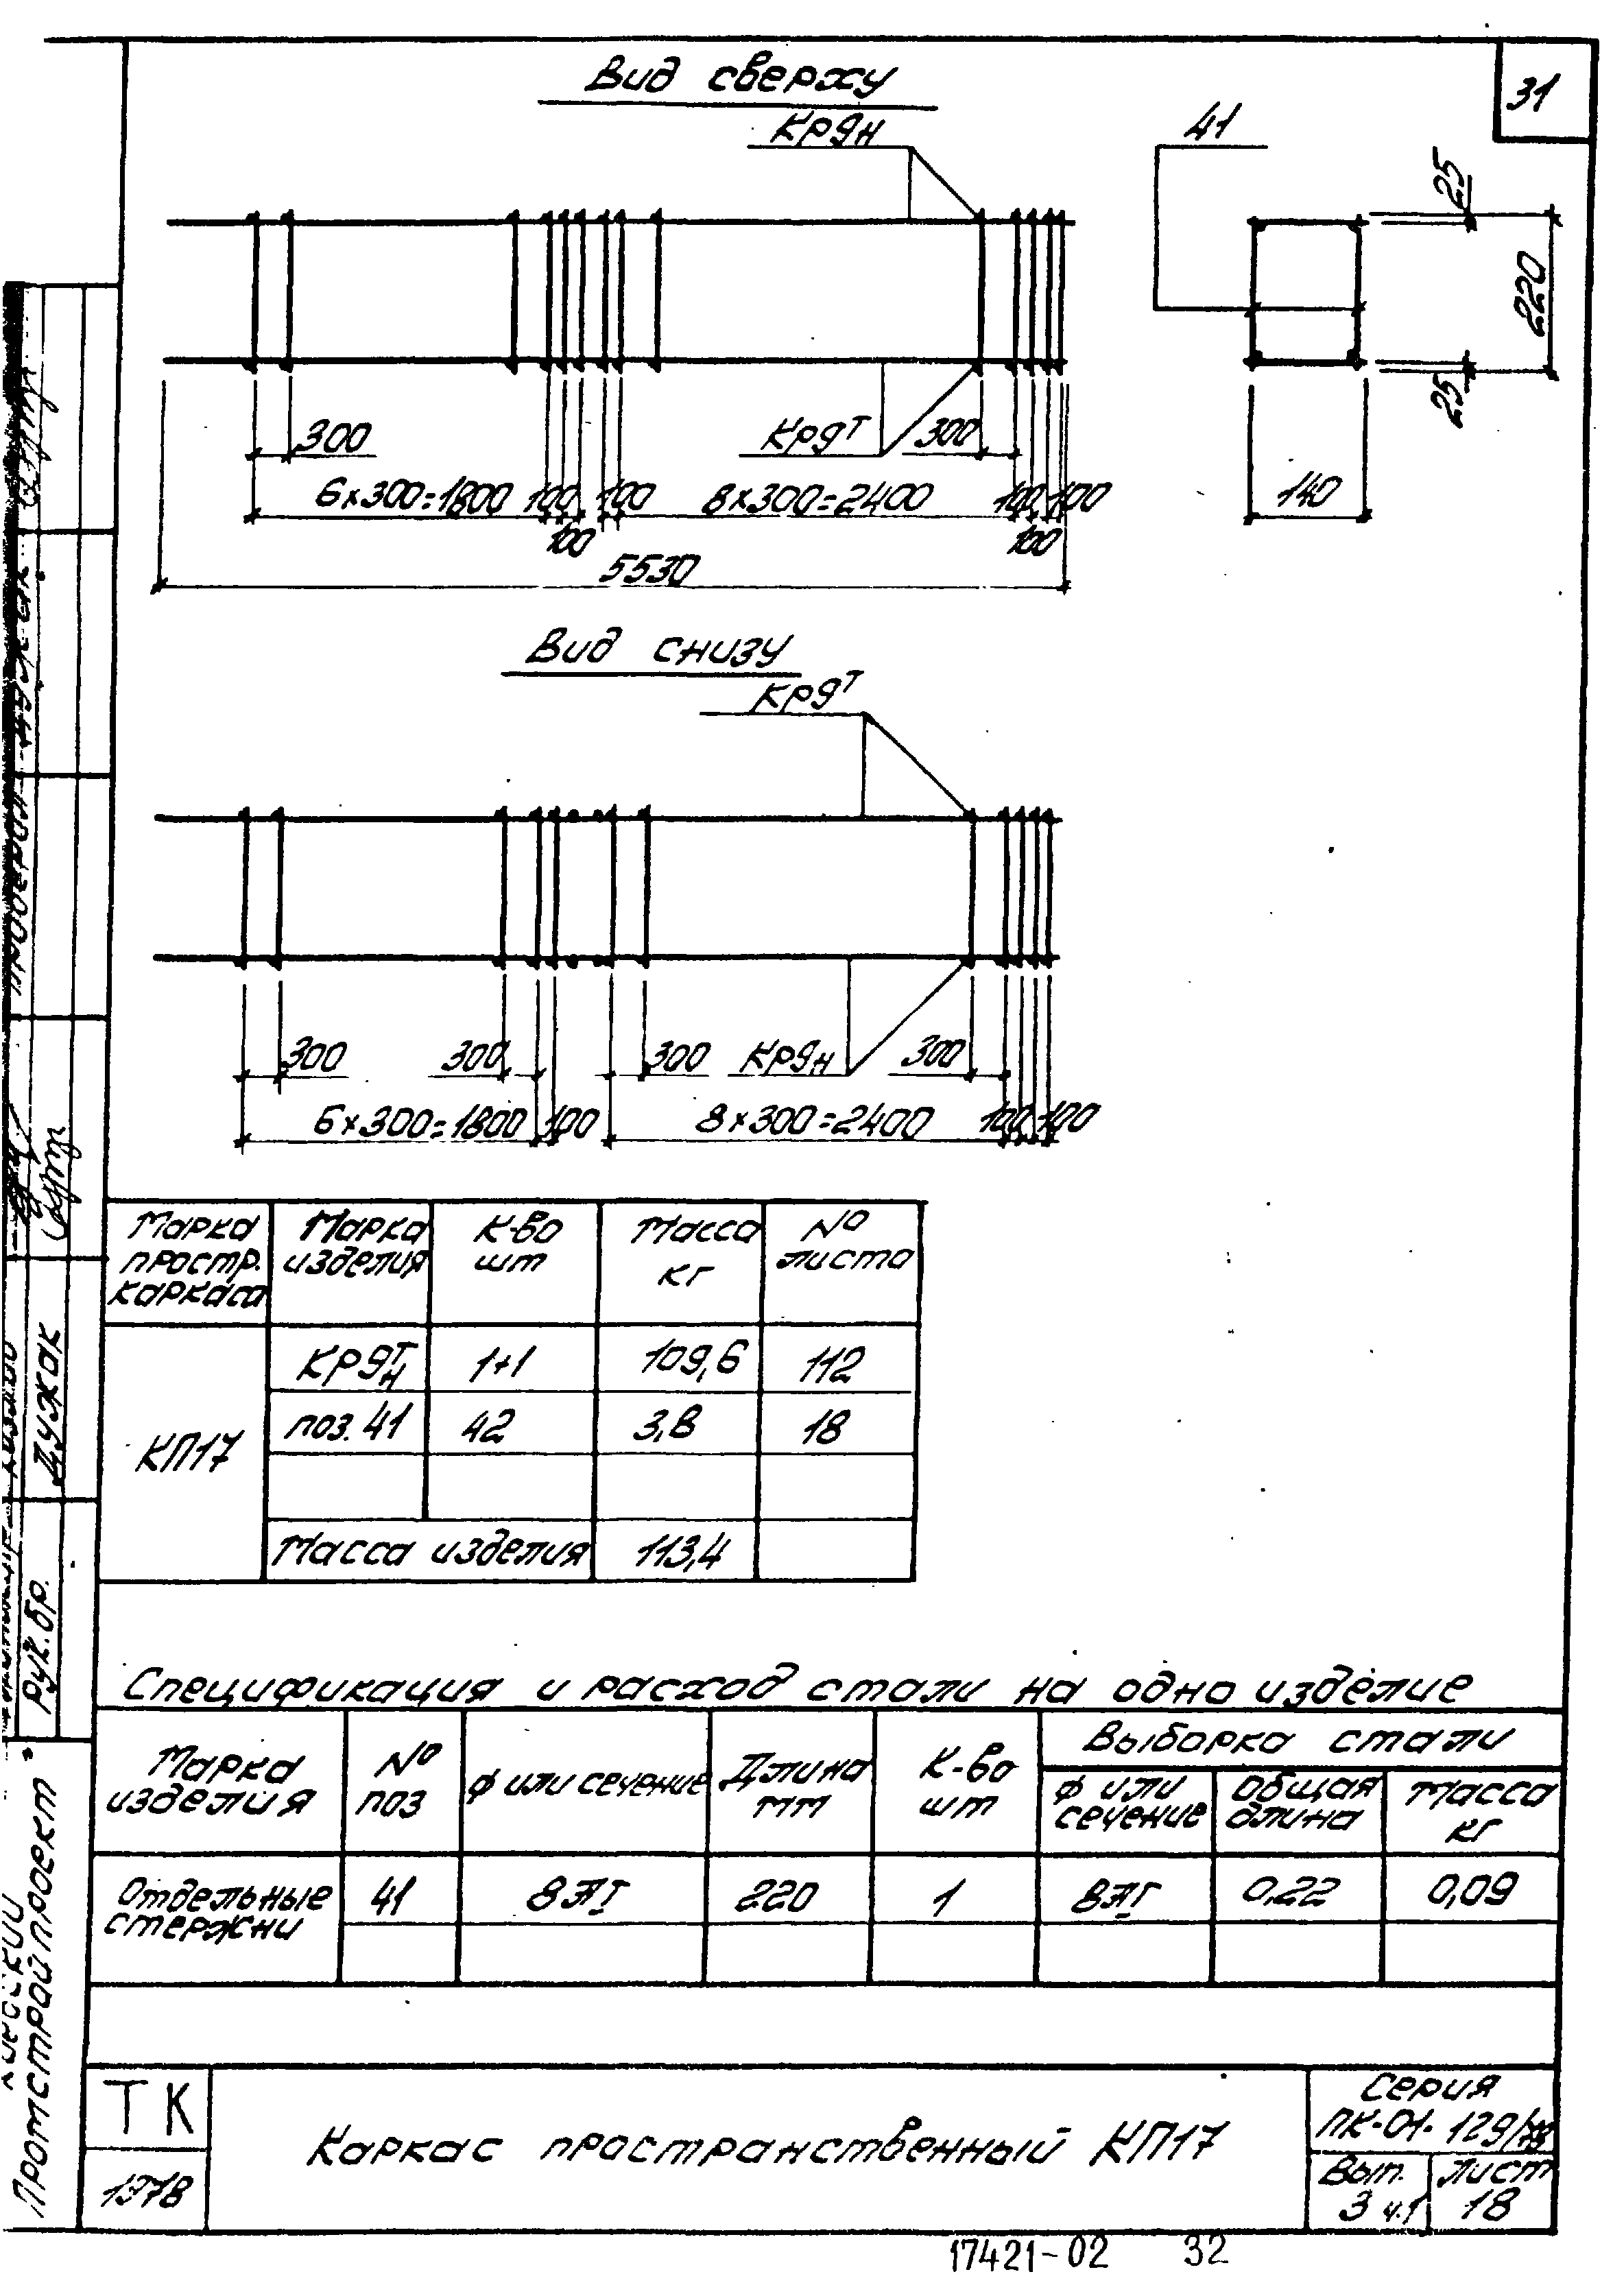 31
Вид сверху
КР9н
41
25
220
25
140
300
КР9т
300
6×300=1800
100
100
8×300=2400
100
100
100
100
5530
Вид снизу
КР9т
300
300
300
КР9н
300
6×300=1800
100
8×300=2400
100
100
Марка простр. каркаса
Марка изделия
К-во шт
Масса кг
№ листа
КП17
КР9т н
1+1
109,6
112
поз. 41
42
3,8
18
Масса изделия
113,4
Спецификация и расход стали на одно изделие
Марка изделия
№ поз
ф или сечение
Длина мм
К-во шт
Выборка стали
ф или сечение
Общая длина
Масса кг
Отдельные стержни
41
8АI
220
1
8АI
0,22
0,09
ТК
1978
Каркас пространственный КП17
Серия
ПК-01-129/78
Вып.
3 ч.1
Лист
18
17421-02
32
Рук. бр.
Дужак
Проверил
Дужак
Киевский
Промстройпроект